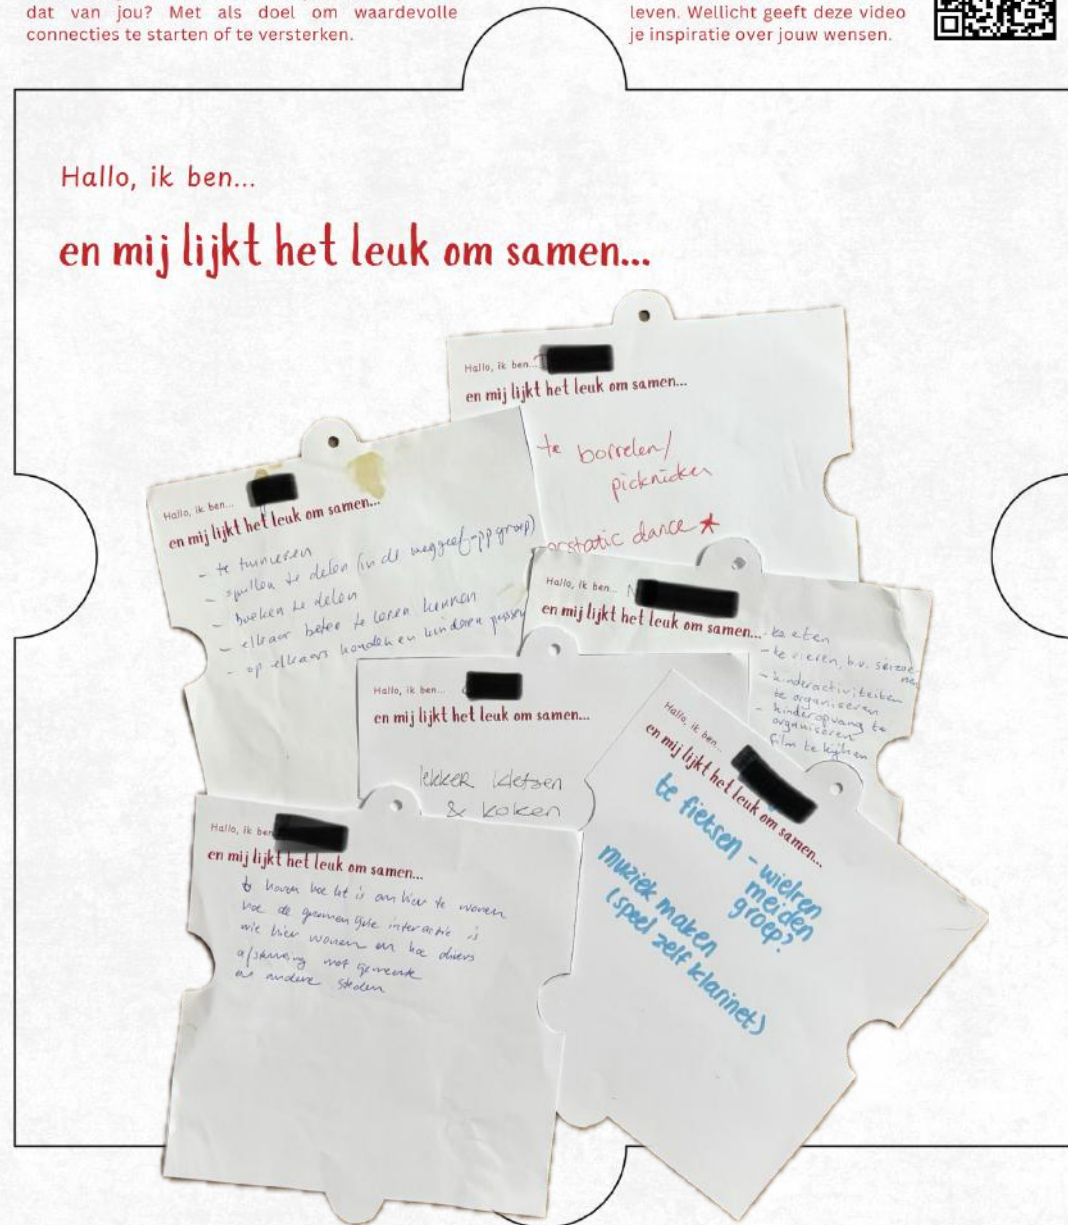 dat van jou? Met als doel om waardevolle
connecties te starten of te versterken.
leven. Wellicht geeft deze video
je inspiratie over jouw wensen.
Hallo, ik ben...
en mij lijkt het leuk om samen...
Hallo, ik ben...
en mij lijkt het leuk om samen...
te borrelen/
picknicken
ecstatic dance
Hallo, ik ben...
en mij lijkt het leuk om samen...
- te tuinieren
- spullen te delen (in de weggeef-appgroep)
- boeken te delen
- elkaar beter te leren kennen
- op elkaars honden en kinderen passen
Hallo, ik ben...
en mij lijkt het leuk om samen...
- te eten
- te vieren, b.v. seizoe-
nen
- kinderactiviteiten
te organiseren
- kinderopvang te
organiseren
film te kijken
Hallo, ik ben...
en mij lijkt het leuk om samen...
lekker kletsen
& koken
Hallo, ik ben...
en mij lijkt het leuk om samen...
te fietsen - wielren
meiden
groep?
muziek maken
(speel zelf klarinet)
Hallo, ik ben
en mij lijkt het leuk om samen...
te horen hoe het is om hier te wonen
hoe de interactie is
wie hier wonen en hoe divers
afstemming met gemeente
en andere steden